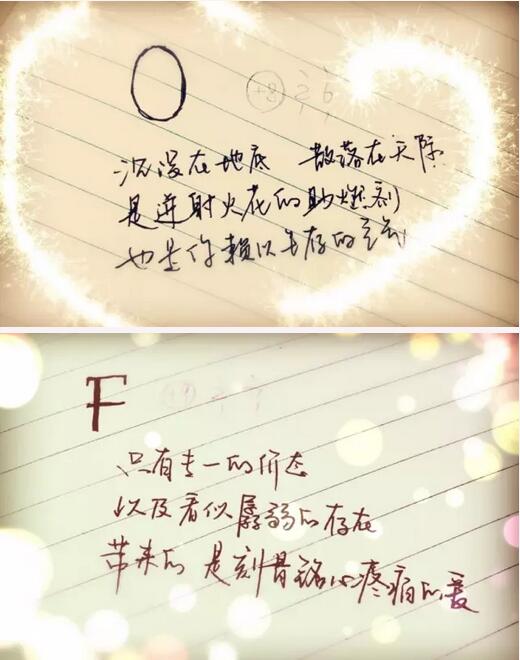 O
+8 2 6
沉浸在地底 散落在天际
是迸射火花的助燃剂
也是你赖以生存的氧气
F
+9 2 7
只有专一的价态
以及看似孱弱的存在
带来的 是刻骨铭心疼痛的爱